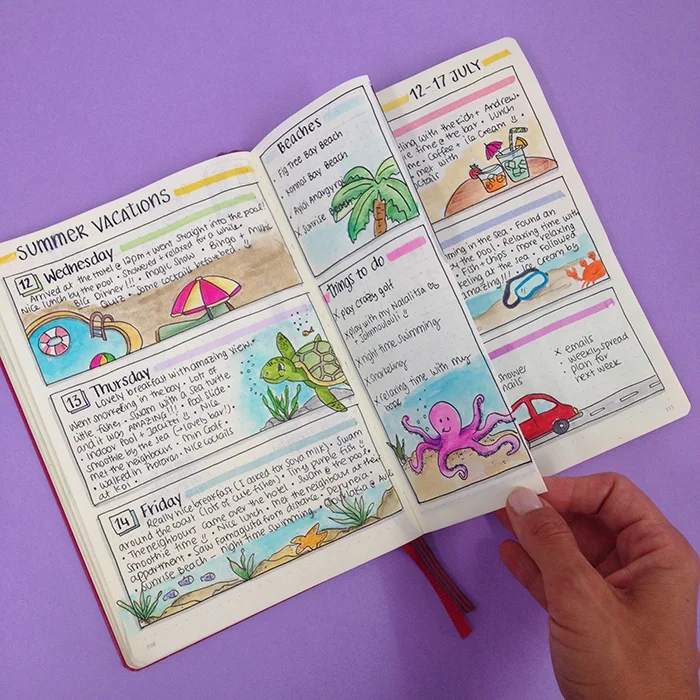 SUMMER VACATIONS
12 Wednesday
Arrived at the hotel @ 12pm + went straight into the pool!
Nice lunch by the pool • Showered + relaxed for a while •
BIG Dinner!!! • Magic Show • Bingo + Music
Quiz • Some cocktails before bed
13 Thursday
Lovely breakfast with amazing view •
Went snorkeling in the bay • Lots of
little fishes • Swam with a sea turtle
and it was AMAZING!!! • Pool slide •
• Indoor Pool + Jacuzzi • Nice
smoothie by the sea (+ lovely bar!) •
met the neighbours • Mini Golf •
• Walked in Protaras • Nice cocktails
at Koi •
14 Friday
Really nice breakfast (I asked for soya milk) • Swam
around the coast (lots of cute fishes) • Tiny purple fish
• The neighbours came over the hotel • Swam @ the pool •
smoothie time !! • Nice lunch • met the neighbour at the
appartment • Saw Famagusta from distance • Deryneia •
• Sunrise Beach - night time swimming •
Beaches
• Fig Tree Bay Beach
• Konnos Bay Beach
• Ayioi Anargyroi
x Sunrise Beach
things to do
x play crazy golf
x play with my
x night time swimming
x snorkeling
x relaxing time with my
12-17 JULY
with the Kich + Andrew •
time @ the bar • Lunch
time • Coffee + ice cream
met with
cocktails
in the sea • Found an
by the pool • Relaxing time with
• Fish + Chips • more relaxing
at the sea • Followed
amazing!!! • Ice cream by
shower
nails
x emails
• weekly spread
• plan for
next week